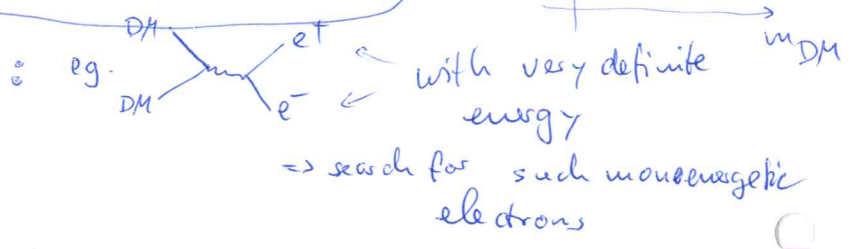 DM
m DM
: eg.
e+
DM
e-
with very definite
energy
=> search for such monoenergetic
electrons